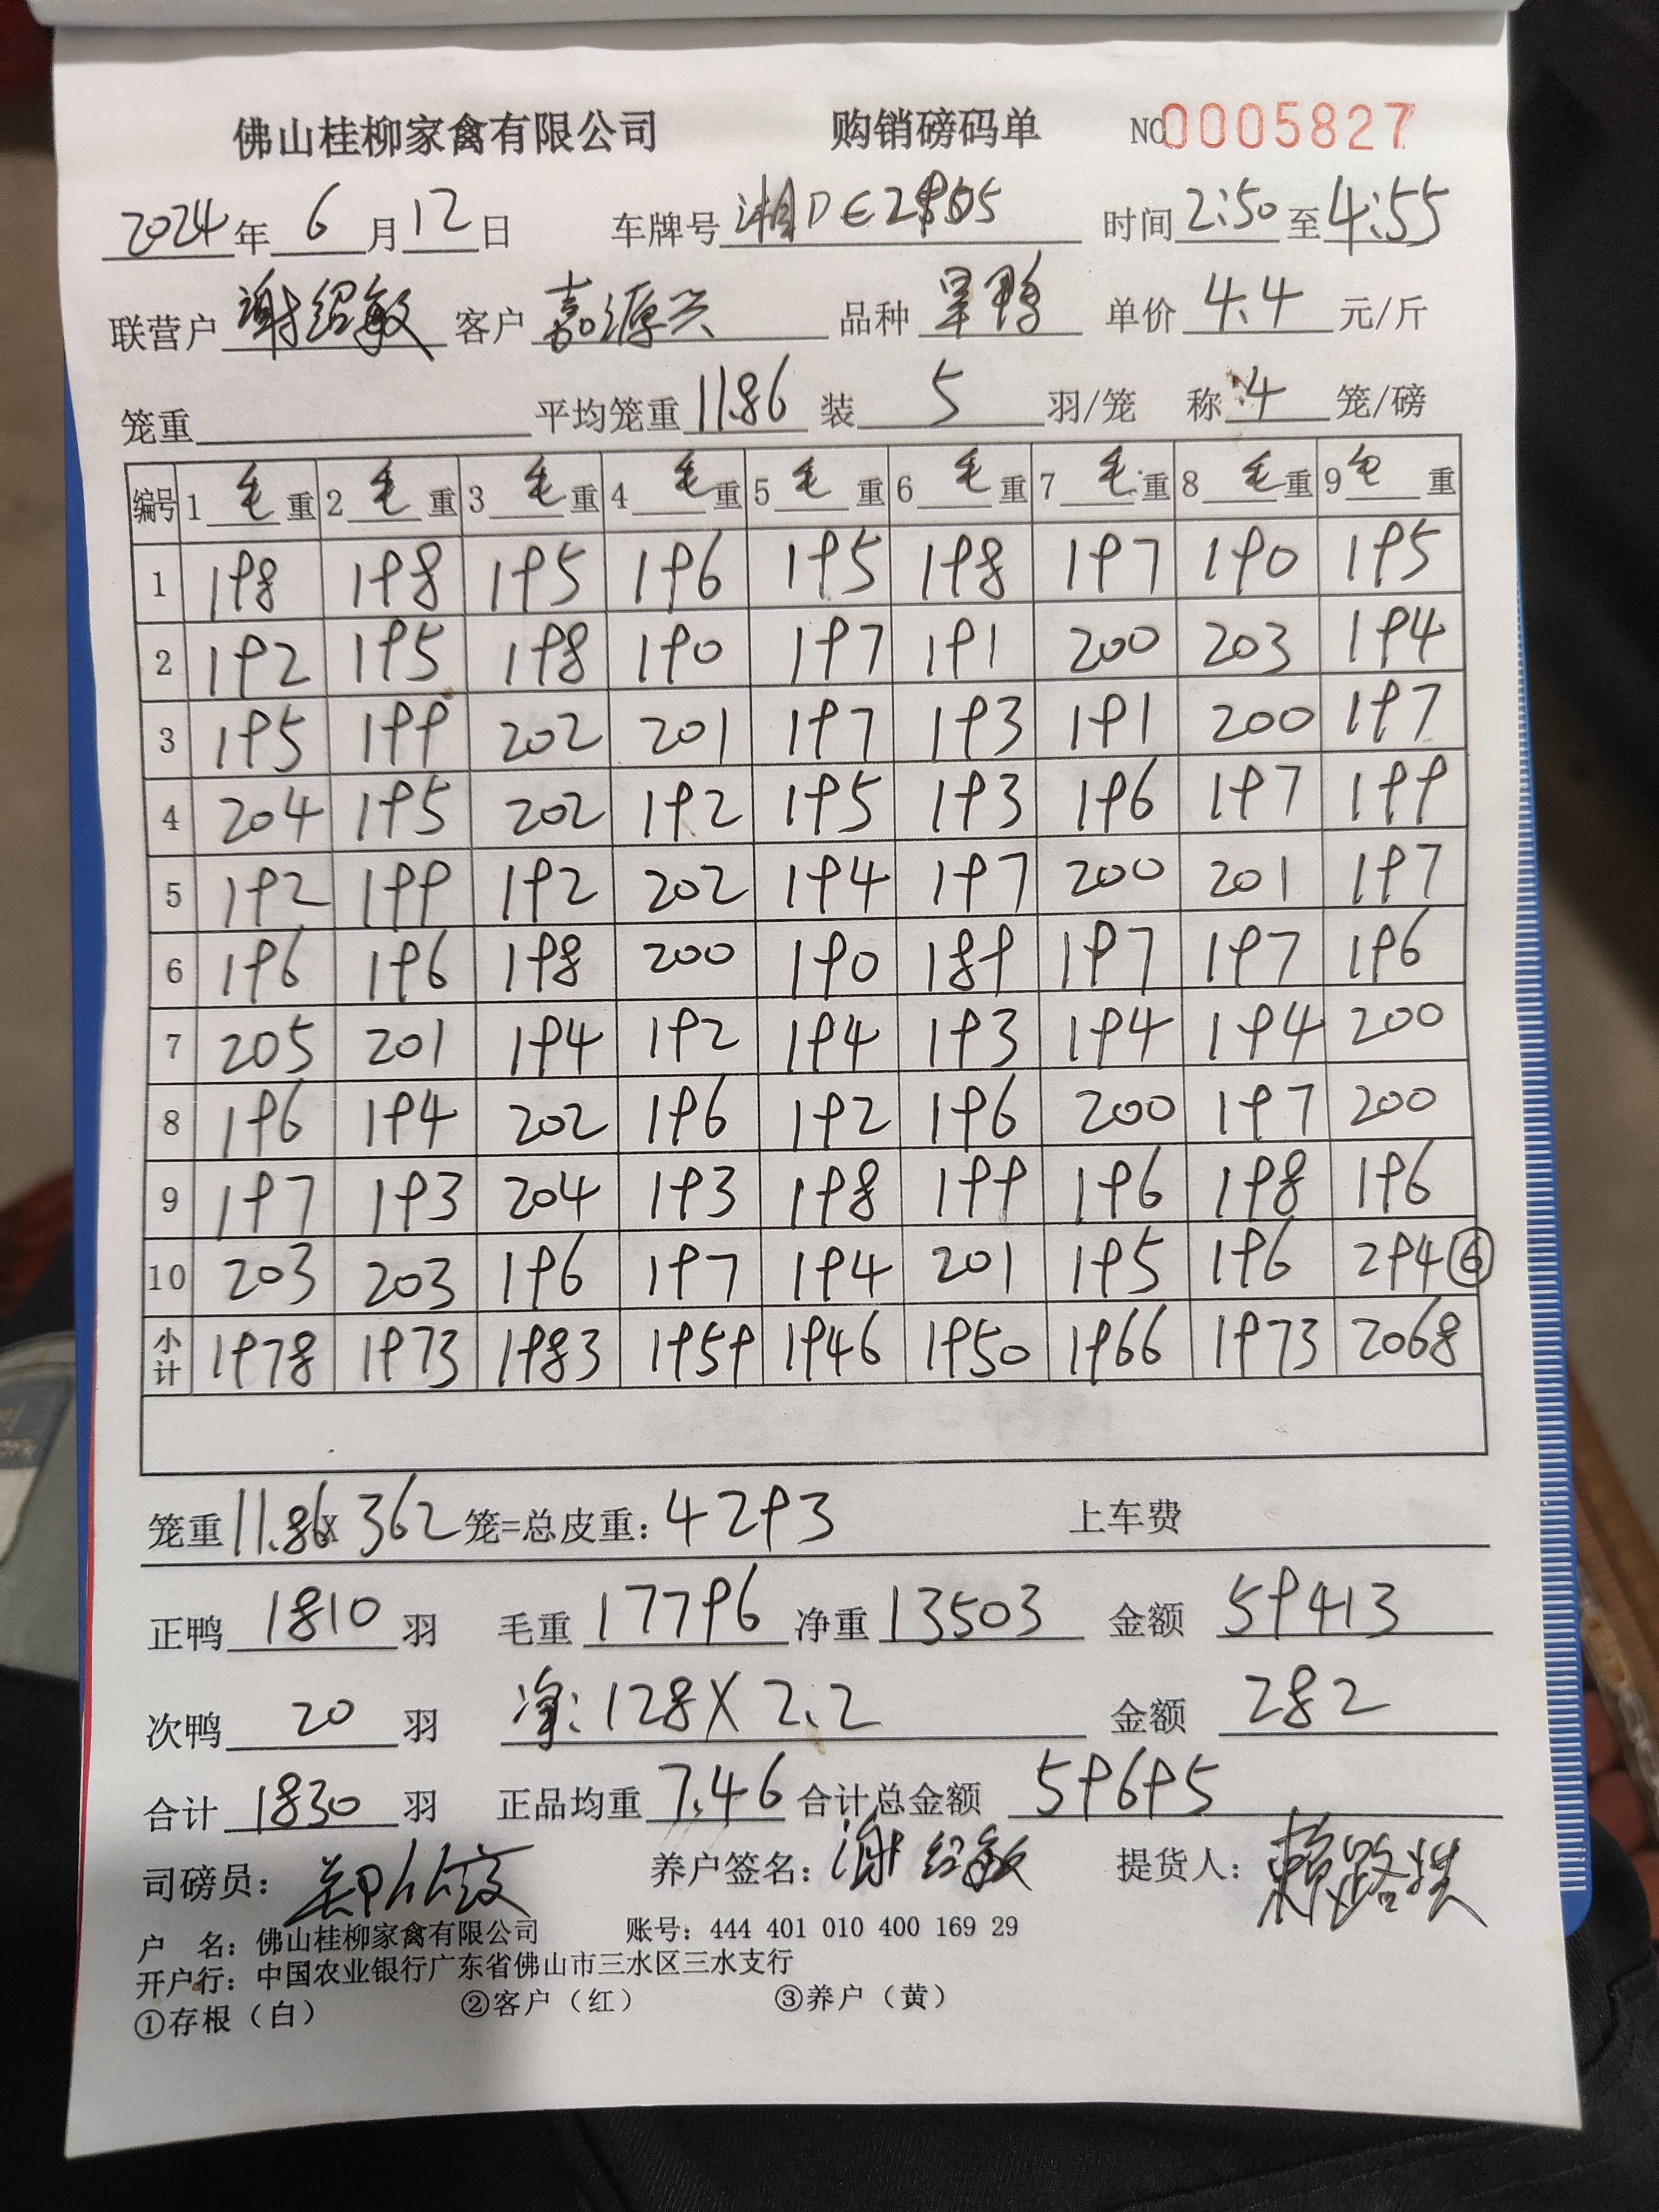 佛山桂柳家禽有限公司 购销磅码单 NO 0005827
2024年 6 月 12 日 车牌号 湘DE2865 时间 2:50 至 4:55
联营户 谢绍敏 客户 嘉源兴 品种 旱鸭 单价 4.4 元/斤
笼重 平均笼重 11.86 装 5 羽/笼 称 4 笼/磅
编号 1 毛重 2 毛重 3 毛重 4 毛重 5 毛重 6 毛重 7 毛重 8 毛重 9 毛重
1 198 198 195 196 195 198 197 190 195
2 192 195 198 190 197 191 200 203 194
3 195 199 202 201 197 193 191 200 197
4 204 195 202 192 195 193 196 197 199
5 192 199 192 202 194 197 200 201 197
6 196 196 198 200 190 189 197 197 196
7 205 201 194 192 194 193 194 194 200
8 196 194 202 196 192 196 200 197 200
9 197 193 204 193 198 199 196 198 196
10 203 203 196 197 194 201 195 196 294 ⑥
小计 1978 1973 1983 1959 1946 1950 1966 1973 2068
笼重 11.86 x 362 笼=总皮重: 4293 上车费
正鸭 1810 羽 毛重 17796 净重 13503 金额 59413
次鸭 20 羽 净: 128 X 2.2 金额 282
合计 1830 羽 正品均重 7.46 合计总金额 59695
司磅员: 养户签名: 谢绍敏 提货人:
户 名: 佛山桂柳家禽有限公司 账号: 444 401 010 400 169 29
开户行: 中国农业银行广东省佛山市三水区三水支行
①存根（白） ②客户（红） ③养户（黄）